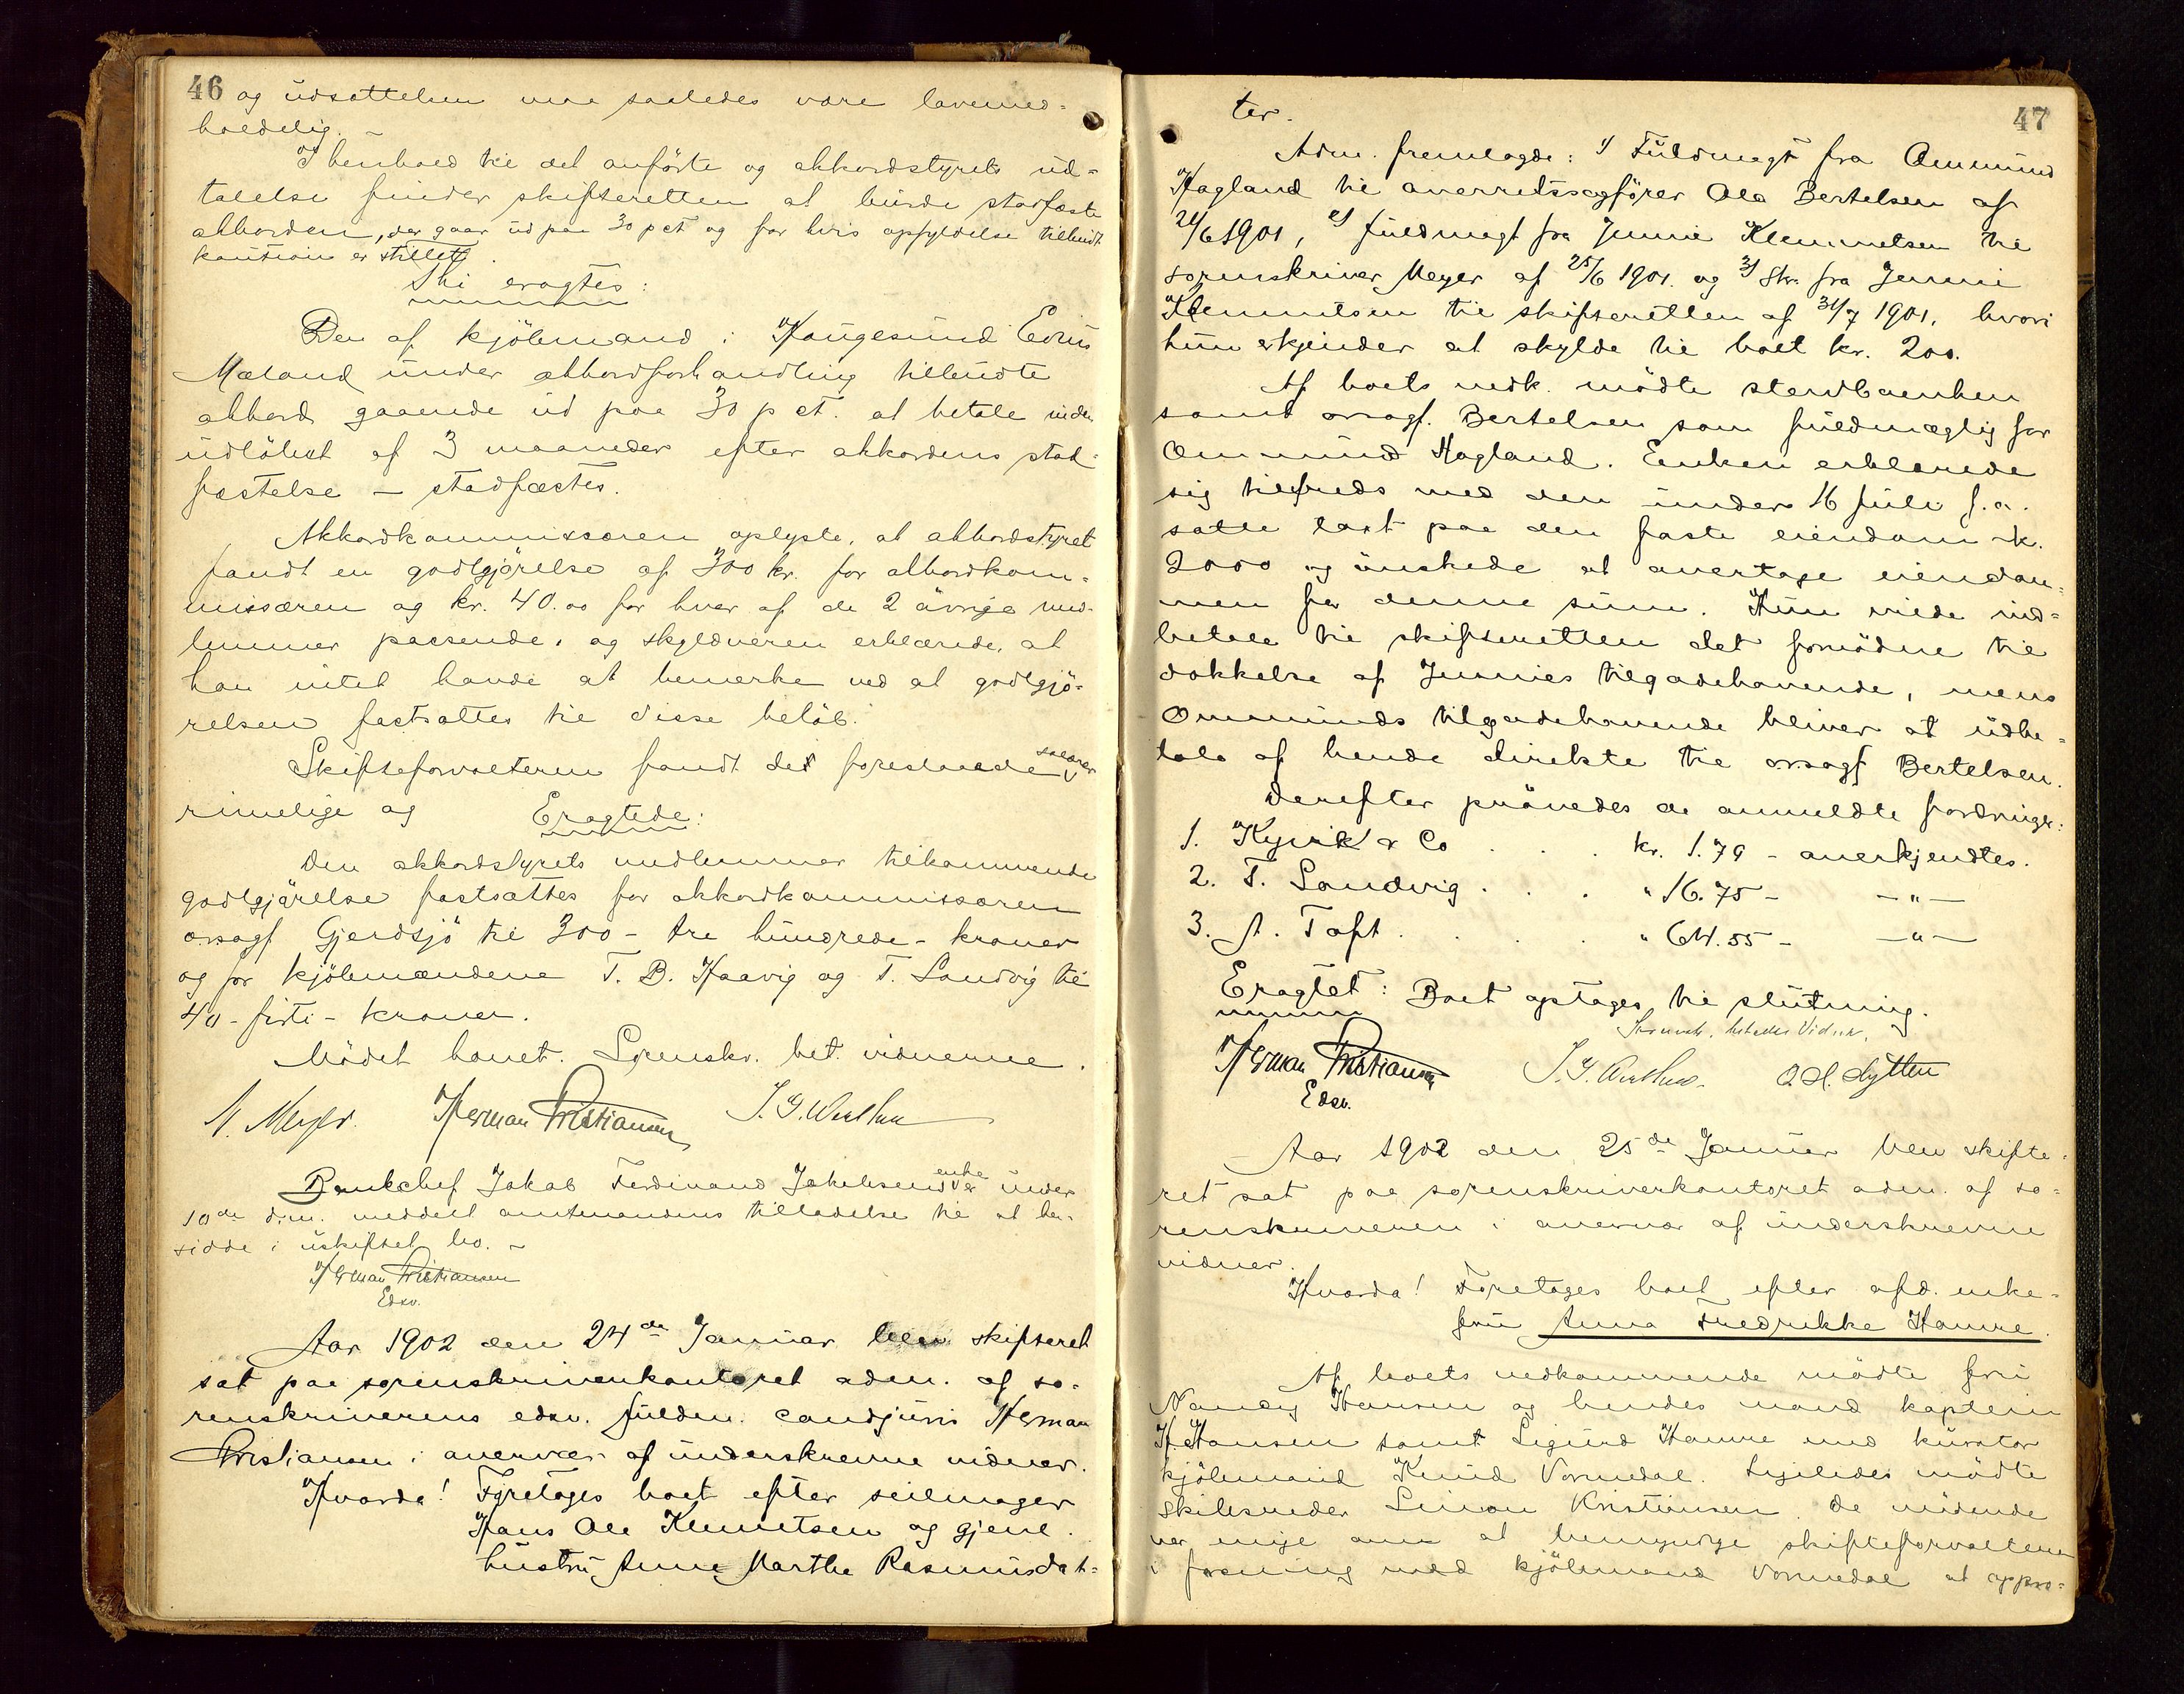 46 og udsættelsen maa saaledes være lovmes-
holdelig. -
I henhold til det anførte og akkordstyrets ud-
talelse finder skifteretten at burde stadfæste
akkorden, der gaar ud paa 30 pct og for hvis opfyldelse tilbudt
kaution er stillet.
Thi eragtes:
Den af kjøbmand i Haugesund Edvin
Mæland under akkordforhandling tilbudte
akkord gaaende ud paa 30 pct. at betale inden
udløbet af 3 maaneder efter akkordens stad-
fæstelse – stadfæstes.
Akkordkommissæren oplyste, at akkordstyret
fandt en godtgjørelse af 300 kr. for akkordkom-
missæren og kr. 40.00 for hver af de 2 øvrige med-
lemmer passende, og skyldneren erklærede, at
han intet havde at bemerke ved at godtgjø-
relsen fastsattes til disse beløb.
Skifteforvalteren fandt det foreslaaede salær
rimelige og Eragtede:
Den akkordstyrets medlemmer tilkommende
godtgjørelse fastsættes for akkordkommissæren
orsagf. Gjerdsjø til 300 – tre hundrede – kroner
og for kjøbmændene T. B. Haavig og T. Sandvig til
40 – firti – kroner.
Mødet hævet. Sorenskr. bet. vidnerne.
M. Meyer. Herman Christiansen J. G. Wathne
Bankchef Jakob Ferdinand Jakobsens enke er under
10de d.m. meddelt amtmandens tilladelse til at hen-
sidde i uskiftet bo. –
Herman Christiansen
Edsv.
Aar 1902 den 24de Januar blev skifteret
sat paa sorenskriverkontoret adm. af so-
renskriverens edsv. fuldm. cand juris Herman
Christiansen i overvær af underskrevne vidner.
Hvorda! Foretages boet efter seilmager
Hans Ole Klemetsen og gjenl.
hustru Anne Marthe Rasmusdat-
47
ter.
Adm. fremlagde: 1) Fuldmagt fra Ommund
Hagland til overretssagfører Ole Bertelsen af
21/6 1901, 2) fuldmagt fra Jennie Klemmetsen til
sorenskriver Meyer af 25/6 1901. og 3) Skr. fra Jennie
Klemmetsen til skifteretten af 31/7 1901, hvori
hun erkjender at skylde til boet kr. 200.
Af boets vedk. mødte stervboenken
samt orsagf. Bertelsen som fuldmægtig for
Ommund Hagland. Enken erklærede
sig tilfreds med den under 16 juli f.a.
satte takt paa den faste eiendom – k.
2000 og ønskede at overtage eiendom-
men for denne sum. Hun vilde ind-
betale til skifteretten det fornødne til
dækkelse af Jennies tilgodehavende, mens
Ommunds tilgodehavende bliver at udbe-
tale af hende direkte til orsagf Bertelsen.
Derefter prøvedes de anmeldte fordringer:
1. Kyvik & Co . . . kr. 1.79 – anerkjendtes.
2. T. Sandvig . . . " 16.75 – – " –
3. A. Toft . . . . " 64.55 – – " –
Eragtet: Boet optages til slutning.
Sorenskr. betalte Vidner.
Herman Christiansen J. G. Wathne. O H. Lytten
Edsv.
Aar 1902 den 25de Januar blev skifte-
ret sat paa sorenskriverkontoret adm. af so-
renskriveren i overvær af underskrevne
vidner.
Hvorda! Foretages boet efter afd. enke-
fru Anna Fredrikke Hamre.
Af boets vedkommende mødte fru
Nancy Hansen og hendes mand kaptein
H. Hansen samt Sigurd Hamre med kurator
kjøbmand Knud Vormedal. Ligeledes mødte
skibsreder Simon Kristiansen. De mødende
var enige om at bemyndige skifteforvalteren
i forening med kjøbmand Vormedal at oppro-